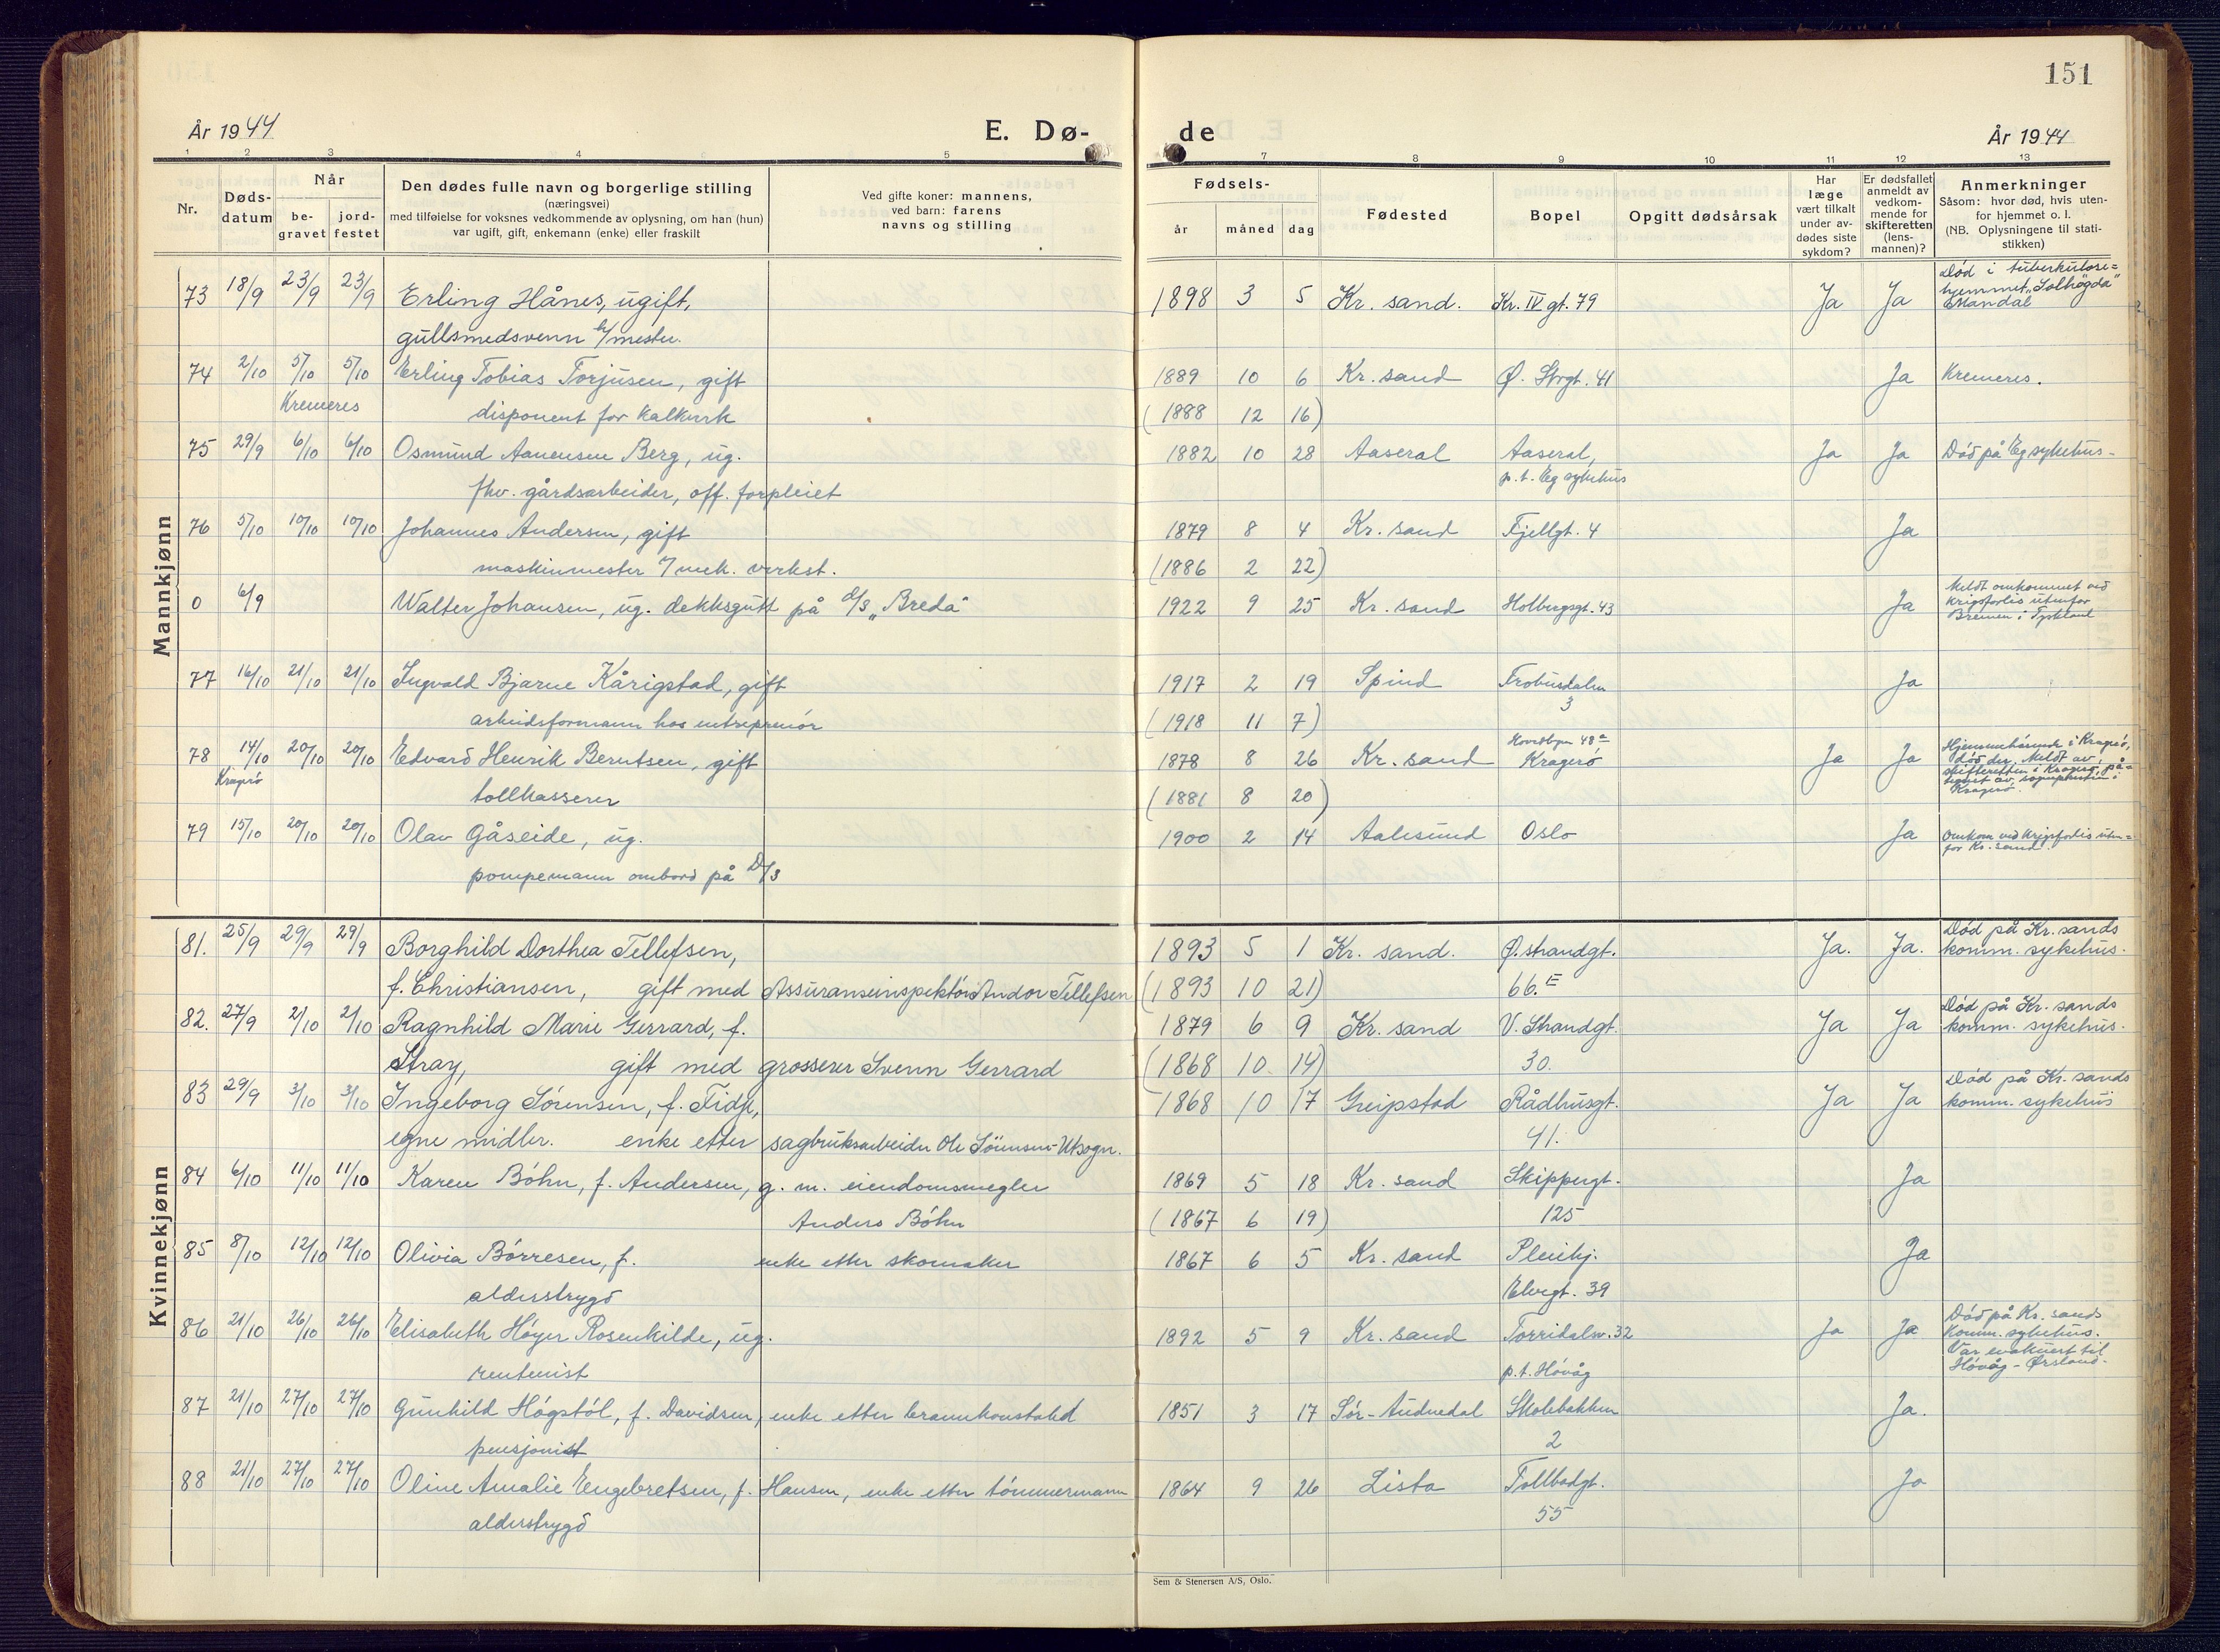 151
År 1944
E. Dø-
de
År 1944
1 2 3 4 5 7 8 9 10 11 12 13
Nr.
Døds-
datum
Når
be-
gravet
jord-
festet
Den dødes fulle navn og borgerlige stilling
(næringsvei)
med tilføielse for voksnes vedkommende av oplysning, om han (hun)
var ugift, gift, enkemann (enke) eller fraskilt
Ved gifte koner: mannens,
ved barn: farens
navns og stilling
Fødsels-
år måned dag
Fødested
Bopel
Opgitt dødsårsak
Har
læge
vært tilkalt
under av-
dødes siste
sykdom?
Er dødsfallet
anmeldt av
vedkom-
mende for
skifteretten
(lens-
mannen)?
Anmerkninger
Såsom: hvor død, hvis uten-
for hjemmet o. l.
(NB. Oplysningene til stati-
stikken)
Mannkjønn
73 18/9 23/9 23/9 Erling Hånes, ugift, 1898 3 5 Kr. sand. Kr. IV gt. 79 Ja Ja Død i tuberkulose=
hjemmet „Solhøgda"
Mandal
gullsmedsvenn h/mester.
74 2/10 5/10 5/10 Erling Tobias Torjusen, gift 1889 10 6 Kr. sand Ø. Strgt. 41 Ja Kremeres.
Kremeres disponent for kalkverk (1888 12 16)
75 29/9 6/10 6/10 Osmund Aanensen Berg, ug. 1882 10 28 Aaseral Aaseral, Ja Ja Død på Eg sykehus-
fhv. gårdsarbeider, off. forpleiet p.t. Eg sykehus
76 5/10 10/10 10/10 Johannes Andersen, gift 1879 8 4 Kr. sand Fjellgt. 4 Ja
maskinmester v/ mek. verkst. (1886 2 22)
0 6/9 Walter Johansen, ug. dekksgutt på D/S „Breda" 1922 9 25 Kr. sand Holbergsgt. 43 Ja Meldt omkommet ved
krigsforlis utenfor
Bremen i Tyskland
77 16/10 21/10 21/10 Ingvald Bjarne Kårigstad, gift 1917 2 19 Spind Frobusdalen Ja
3
arbeidsformann hos entreprenør (1918 11 7)
78 14/10 20/10 20/10 Edvard Henrik Berntsen, gift 1878 8 26 Kr. sand Kragerø Ja Ja Hjemmehørende i Kragerø,
død der. Meldt av
skifteretten i Kragerø, på=
tegnet av sognepresten i
Kragerø.
Kragerø tollkasserer (1881 8 20)
79 15/10 20/10 20/10 Olav Gåseide, ug. 1900 2 14 Aalesund Oslo Ja Omkom ved krigsforlis uten=
for Kr. sand.
pompemann ombord på D/S
Kvinnekjønn
81. 25/9 29/9 29/9 Borghild Dorthea Tellefsen, 1893 5 1 Kr. sand. Ø. strandgt. Ja. Ja. Død på Kr. sands
komm. sykehus.
f. Christiansen, gift med Assuranseinspektør Andor Tellefsen (1893 10 21) 66.E
82. 27/9 2/10 2/10 Ragnhild Marie Gerrard, f. 1879 6 9 Kr. sand V. Strandgt. Ja Ja Død på Kr. sands
komm. sykehus.
Stray, gift med grosserer Svenn Gerrard (1868 10. 14) 30.
83 29/9 3/10 3/10 Ingeborg Sørensen, f. Fidje, 1868 10 17 Greipstad Rådhusgt. Ja Ja Død på Kr. sands
komm. sykehus
egne midler. enke etter sagbruksarbeider Ole Sørensen-Utsogn. 41.
84 6/10 11/10 11/10 Karen Bøhn, f. Andersen, g. m. eiendomsmegler 1869 5 18 Kr. sand Skippergt. Ja
Anders Bøhn (1867 6 19) 125
85 8/10 12/10 12/10 Olivia Børresen, f. enke etter skomaker 1867 6 5 Kr. sand Pleiehj. Ja
alderstrygd Elvegt. 39
86 21/10 26/10 26/10 Elisabeth Høyer Rosenkilde, ug. 1892 5 9 Kr. sand Torridalsv. 32 Ja Ja Død på Kr. sands
Komm. sykehus.
Var evakuert til
Høvåg - Ørsland.
rentenist p.t. Høvåg
87 21/10 27/10 27/10 Gunhild Høgstøl, f. Davidsen, enke etter brannkonstabel 1851 3 17 Sør-Audnedal Skolebakken Ja.
pensjonist 2
88 21/10 27/10 27/10 Oline Amalie Engebretsen, f. Hansen, enke etter tømmermann 1864 9 26 Lista Tollbodgt. Ja
alderstrygd 55
Sem & Stenersen A/S, Oslo.